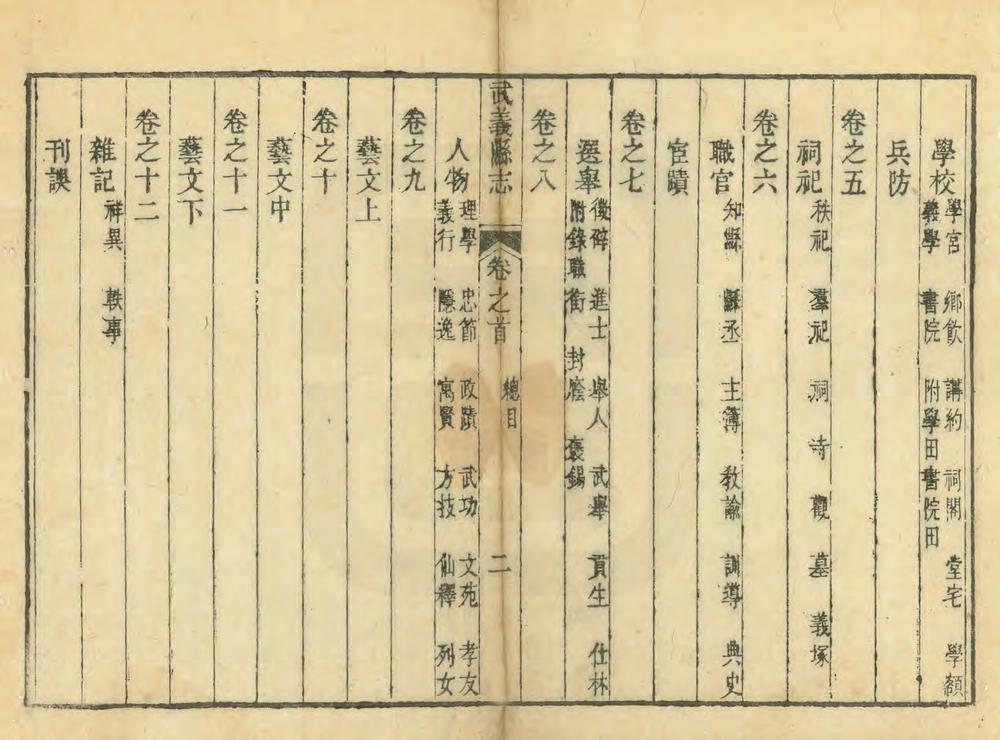 學校 學宮 鄉飲 講約 祠閣 堂宅 學額
義學 書院 附學田書院田
兵防
卷之五
祠祀 秩祀 羣祀 祠 寺 觀 墓 義塚
卷之六
職官 知縣 縣丞 主簿 教諭 訓導 典史
宦蹟
卷之七
選舉 徵辟 進士 舉人 武舉 貢生 仕林
附錄職銜 封廕 褒錫
卷之八
武義縣志 卷之首 總目 二
人物 理學 忠節 政蹟 武功 文苑 孝友
義行 隱逸 寓賢 方技 仙釋 列女
卷之九
藝文上
卷之十
藝文中
卷之十一
藝文下
卷之十二
雜記 祥異 軼事
刊誤